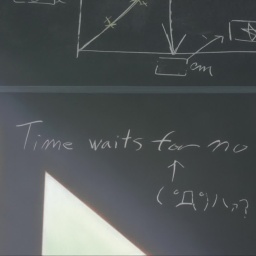 cm
Time waits for no
(゚Д゚)ハァ?